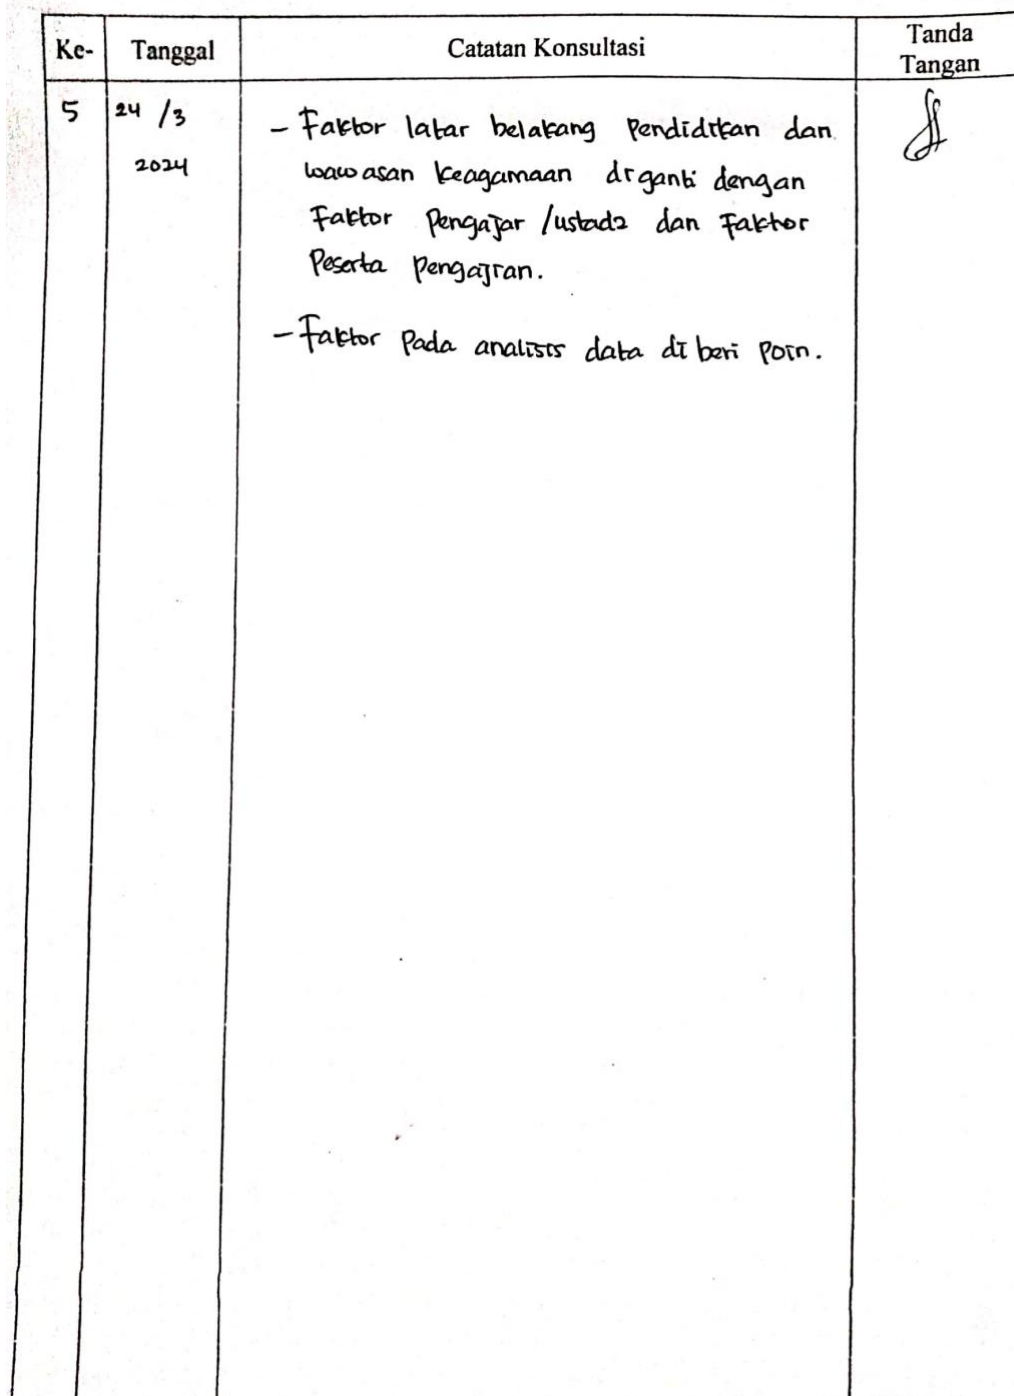 Ke- Tanggal Catatan Konsultasi Tanda
Tangan
5 24 /3 - Faktor latar belakang Pendidikan dan
2024 wawasan keagamaan diganti dengan
Faktor Pengajar /ustadz dan Faktor
Peserta Pengajian.
- Faktor Pada analisis data di beri Poin.